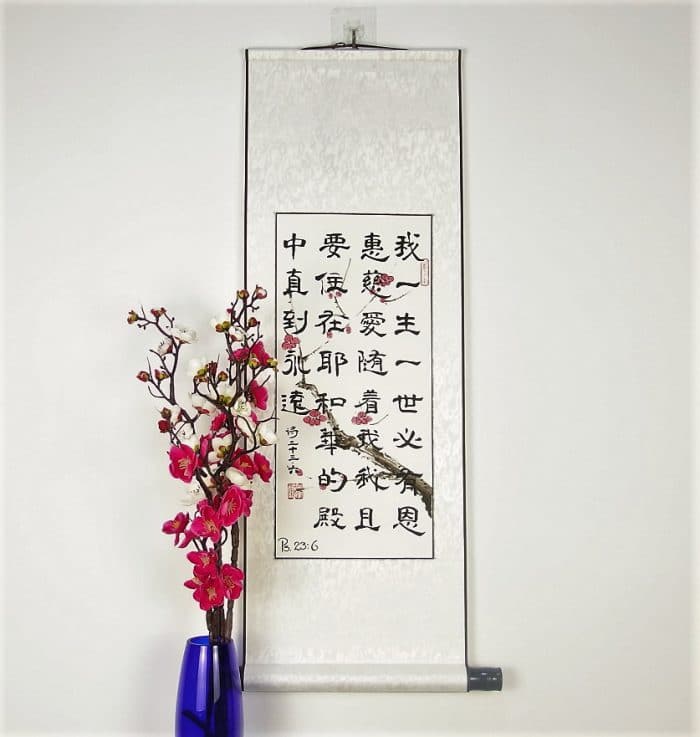 我一生一世必有恩
惠慈愛随着我我且
要住在耶和華的殿
中真到永遠
诗二十三六
Ps. 23:6